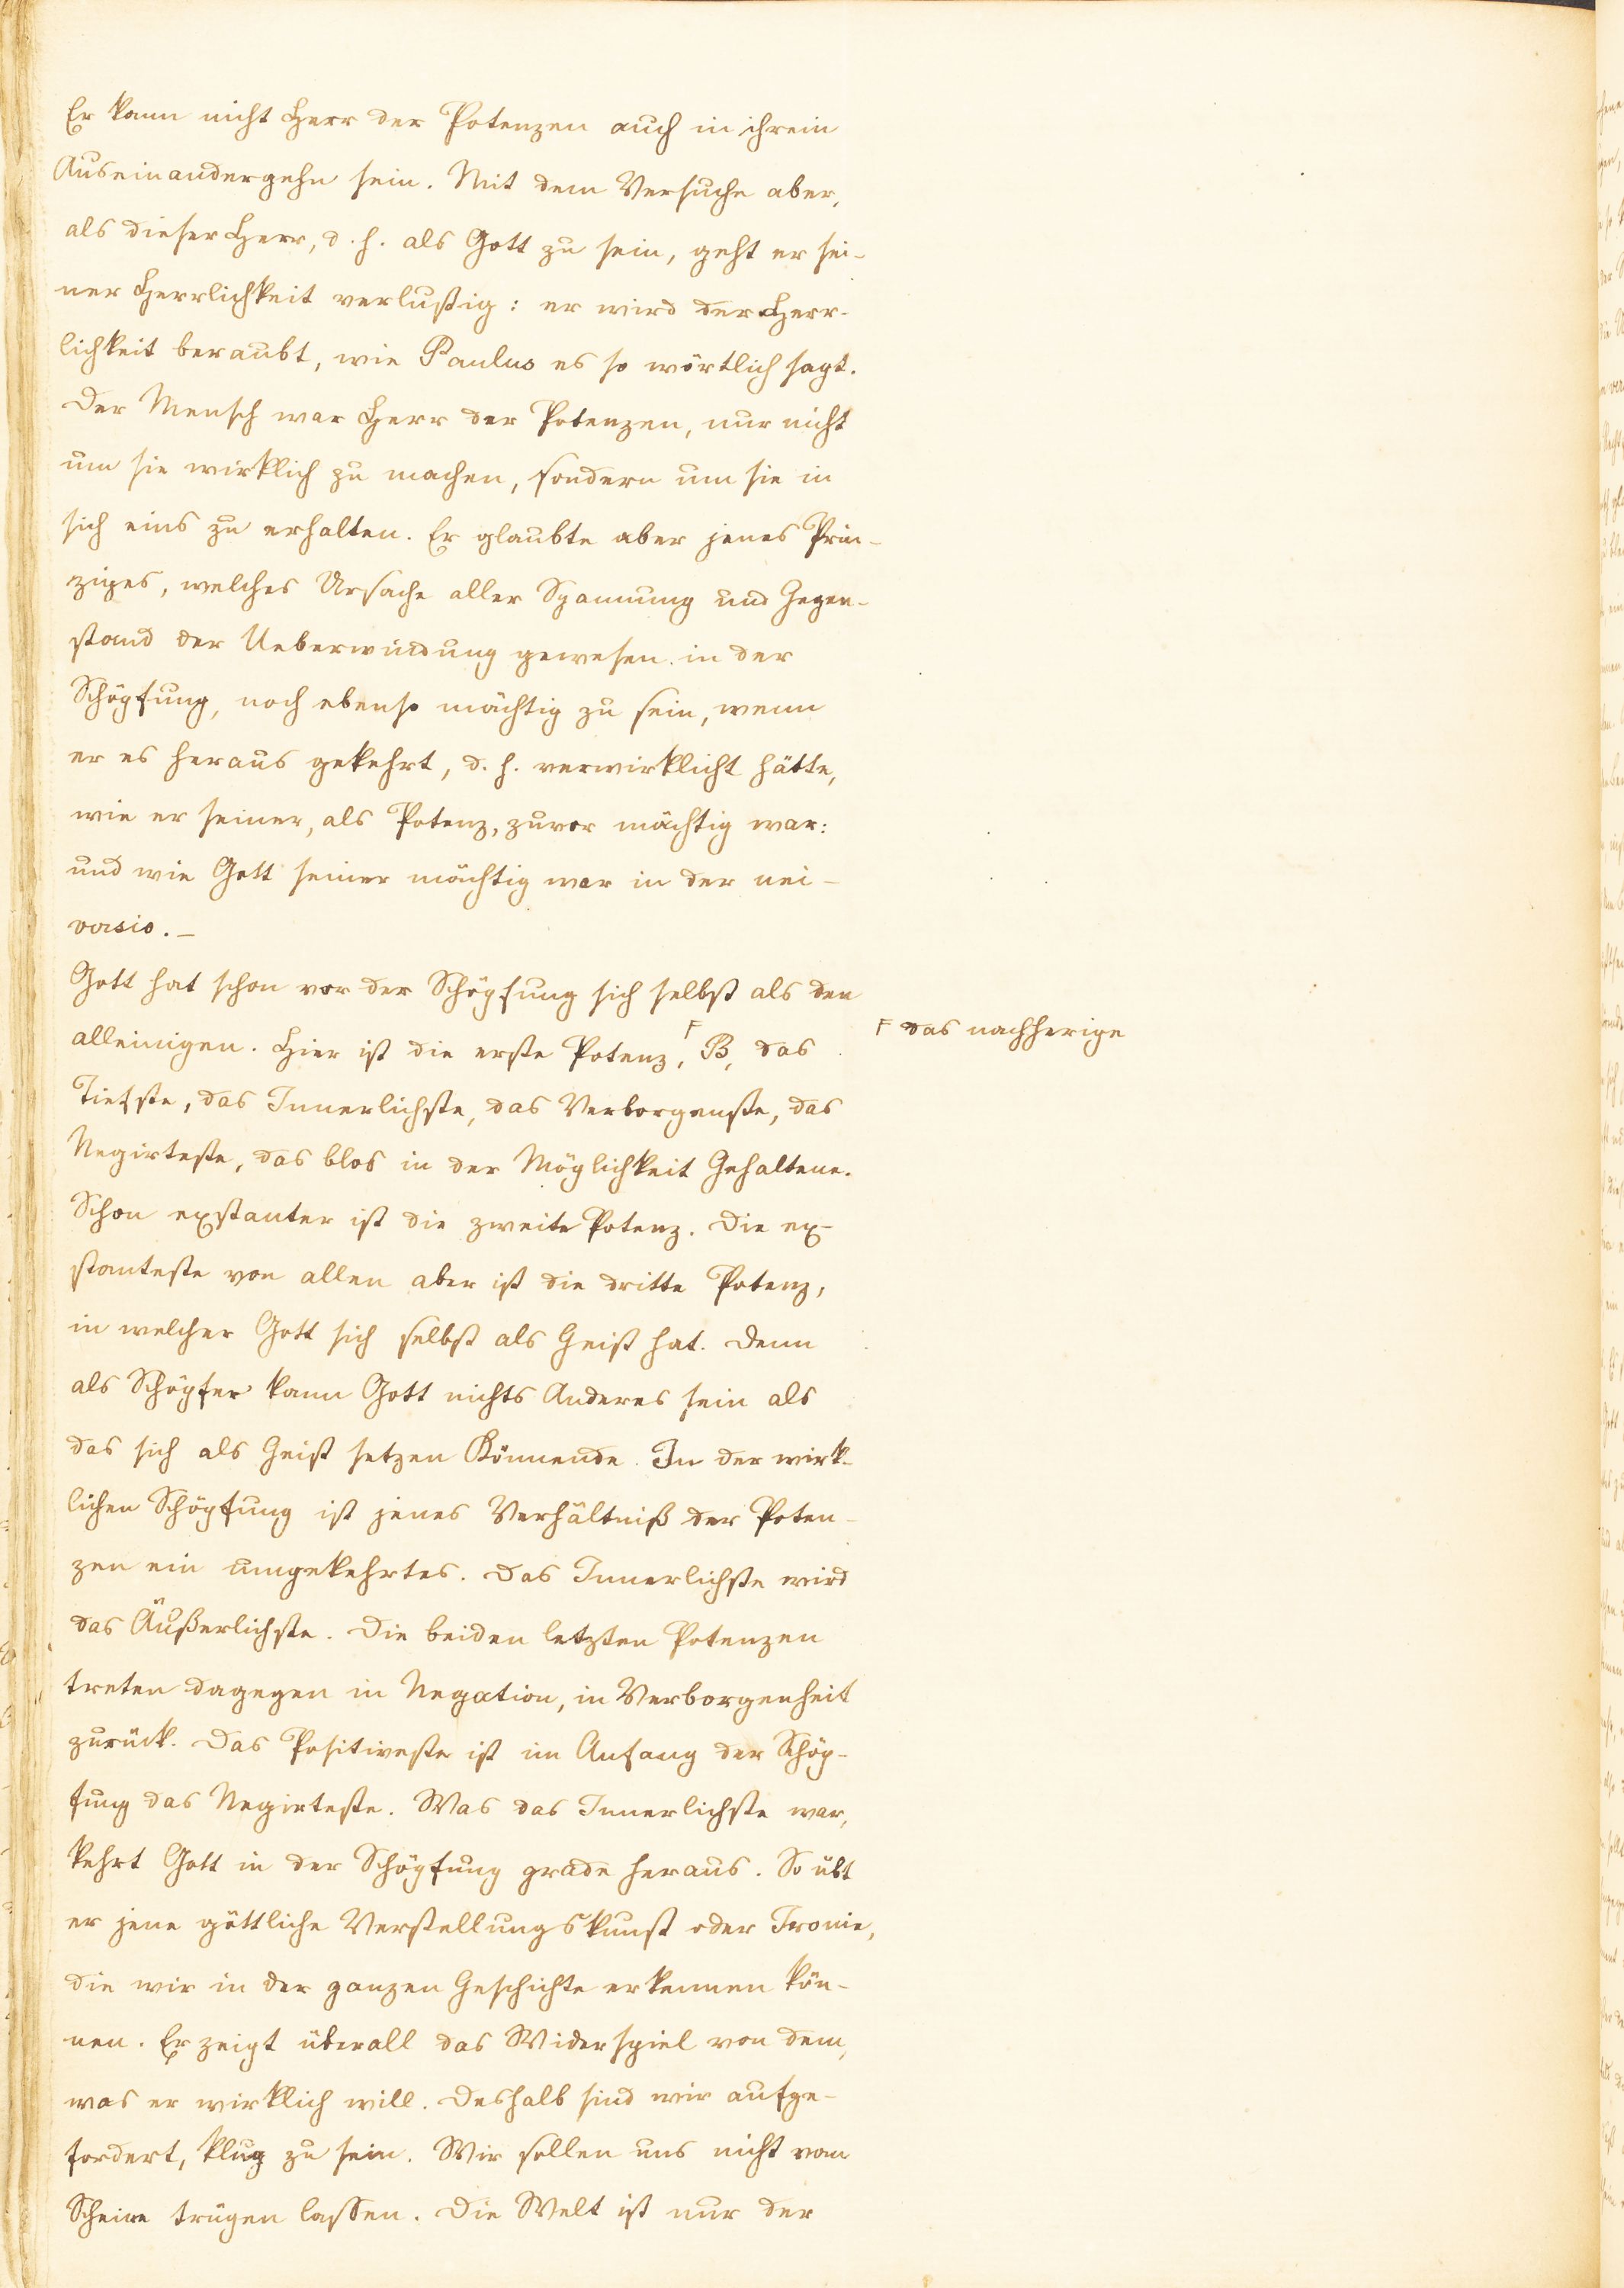 Er kann nicht Herr der Potenzen auch in ihrem
Auseinandergehn sein. Mit dem Versuche aber,
als dieser Herr, d. h. als Gott zu sein, geht er sei-
ner Herrlichkeit verlustig: er wird der Herr-
lichkeit beraubt, wie Paulus es so wörtlich sagt.
Der Mensch war Herr der Potenzen, nur nicht
um sie wirklich zu machen, sondern um sie in
sich eins zu erhalten. Er glaubte aber jenes Prin-
zipes, welches Ursache aller Spannung und Gegen-
stand der Ueberwindung gewesen in der
Schöpfung, noch ebenso mächtig zu sein, wenn
er es heraus gekehrt, d. h. verwirklicht hätte,
wie er seiner, als Potenz, zuvor mächtig war:
und wie Gott seiner mächtig war in der uni-
versio. –
Gott hat schon vor der Schöpfung sich selbst als den
alleinigen. Hier ist die erste Potenz, F B, das
F das nachherige
Tiefste, das Innerlichste, das Verborgenste, das
Negirteste, das blos in der Möglichkeit Gehaltene.
Schon exstanter ist die zweite Potenz. Die ex-
stanteste von allen aber ist die dritte Potenz,
in welcher Gott sich selbst als Geist hat. Denn
als Schöpfer kann Gott nichts Anderes sein als
das sich als Geist setzen Könnende. In der wirk-
lichen Schöpfung ist jenes Verhältniß der Poten-
zen ein umgekehrtes. Das Innerlichste wird
das Äußerlichste. Die beiden letzten Potenzen
treten dagegen in Negation, in Verborgenheit
zurück. Das Positiveste ist im Anfang der Schöp-
fung das Negirteste. Was das Innerlichste war,
kehrt Gott in der Schöpfung grade heraus. So übt
er jene göttliche Verstellungskunst oder Ironie,
die wir in der ganzen Geschichte erkennen kön-
nen. Er zeigt überall das Widerspiel von dem,
was er wirklich will. Deshalb sind wir aufge-
fordert, klug zu sein. Wir sollen uns nicht vom
Scheine trügen lassen. Die Welt ist nur der